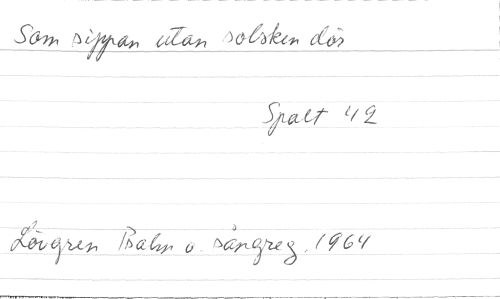 Som sippan utan solsken dör
Spalt 42
Lövgren Psalm o. sångreg. 1964